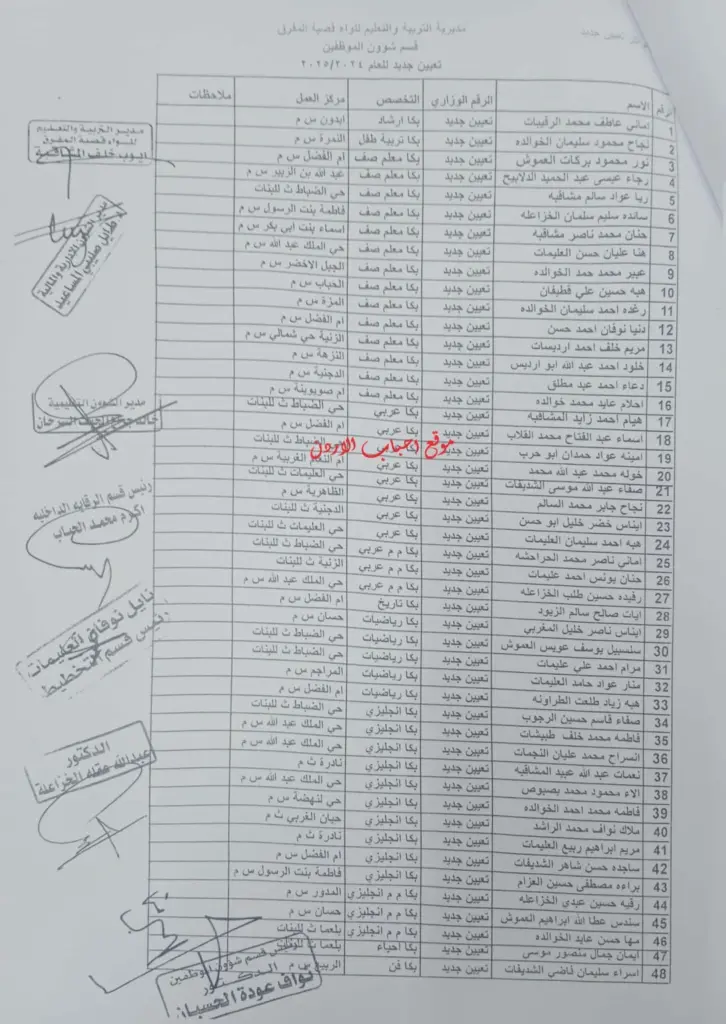 مديرية التربية والتعليم للواء قصبة المفرق
قسم شؤون الموظفين
تعيين جديد للعام ٢٠٢٥/٢٠٢٤
تعيين جديد
الرقم الاسم الرقم الوزاري التخصص مركز العمل ملاحظات
1 اماني عاطف محمد الرقيبات تعيين جديد بكا ارشاد ايدون س م
2 نجاح محمود سليمان الخوالده تعيين جديد بكا تربية طفل النمرة س م
3 نور محمود بركات العموش تعيين جديد بكا معلم صف ام الفضل س م
4 رجاء عيسى عبد الحميد الدلابيح تعيين جديد بكا معلم صف عبد الله بن الزبير س م
5 ربا عواد سالم مشاقبه تعيين جديد بكا معلم صف حي الضباط ث للبنات
6 سانده سليم سلمان الخزاعله تعيين جديد بكا معلم صف فاطمة بنت الرسول س م
7 حنان محمد ناصر مشاقبه تعيين جديد بكا معلم صف اسماء بنت ابي بكر س م
8 هنا عليان حسن العليمات تعيين جديد بكا معلم صف حي الملك عبد الله س م
9 عبير محمد حمد الخوالده تعيين جديد بكا معلم صف الجبل الاخضر س م
10 هبه حسين علي قطيفان تعيين جديد بكا معلم صف الحباب س م
11 رغده احمد سليمان الخوالده تعيين جديد بكا معلم صف المزة س م
12 دنيا نوفان احمد حسن تعيين جديد بكا معلم صف ام الفضل س م
13 مريم خلف احمد ارديسات تعيين جديد بكا معلم صف الزنية حي شمالي س م
14 خلود احمد عبد الله ابو ارديس تعيين جديد بكا معلم صف النزهة س م
15 دعاء احمد عيد مطلق تعيين جديد بكا معلم صف الدجنية س م
16 احلام عايد محمد خوالده تعيين جديد بكا معلم صف ام صويوينة س م
17 هيام احمد زايد المشاقبه تعيين جديد بكا عربي حي الضباط ث للبنات
18 اسماء عبد الفتاح محمد القلاب تعيين جديد بكا عربي ام الفضل س م
19 امينه عواد حمدان ابو حرب تعيين جديد بكا عربي الضباط ث للبنات
20 خوله محمد عبد الله محمد تعيين جديد بكا عربي ام النعام الغربية س م
21 صفاء عبد الله موسى الشديفات تعيين جديد بكا عربي حي العليمات ث للبنات
22 نجاح جابر محمد السالم تعيين جديد بكا عربي الظاهرية س م
23 ايناس خضر خليل ابو حسن تعيين جديد بكا عربي الدجنية ث للبنات
24 هبه احمد سليمان العليمات تعيين جديد بكا عربي حي العليمات ث للبنات
25 اماني ناصر محمد الحراحشه تعيين جديد بكا م م عربي حي الضباط ث للبنات
26 حنان يونس احمد عليمات تعيين جديد بكا م م عربي الزنية ث للبنات
27 رفيده حسين طلب الخزاعله تعيين جديد بكا م م عربي حي الملك عبد الله س م
28 ايات صالح سالم الزيود تعيين جديد بكا تاريخ ام الفضل س م
29 ايناس ناصر خليل المغربي تعيين جديد بكا رياضيات حسان س م
30 سلسبيل يوسف عويس العموش تعيين جديد بكا رياضيات حي الضباط ث للبنات
31 مرام احمد علي عليمات تعيين جديد بكا رياضيات حي الضباط ث للبنات
32 منار عواد حامد العليمات تعيين جديد بكا رياضيات المراجم س م
33 هبه زياد طلعت الطراونه تعيين جديد بكا رياضيات ام الفضل س م
34 صفاء قاسم حسين الرجوب تعيين جديد بكا انجليزي حي الضباط ث للبنات
35 فاطمه محمد خلف طبيشات تعيين جديد بكا انجليزي حي الملك عبد الله س م
36 انسراح محمد عليان النجمات تعيين جديد بكا انجليزي حي الملك عبد الله س م
37 نعمات عبد الله عبيد المشاقبه تعيين جديد بكا انجليزي نادرة ث م
38 الاء محمود محمد بصبوص تعيين جديد بكا انجليزي حي الملك عبد الله س م
39 فاطمه محمد احمد الخوالده تعيين جديد بكا انجليزي حي لنهضة س م
40 ملاك نواف محمد الراشد تعيين جديد بكا انجليزي حيان الغربي ث م
41 مريم ابراهيم ربيع العليمات تعيين جديد بكا انجليزي نادرة ث م
42 ساجده حسن شاهر الشديفات تعيين جديد بكا انجليزي ام الفضل س م
43 براءه مصطفى حسين العزام تعيين جديد بكا انجليزي فاطمة بنت الرسول س م
44 رقيه حسين عبدي الخزاعله تعيين جديد بكا م م انجليزي المدور س م
45 سندس عطا الله ابراهيم العموش تعيين جديد بكا م م انجليزي حسان س م
46 مها حسن عايد الخوالده تعيين جديد بكا م م انجليزي بلعما ث للبنات
47 ايمان جمال منصور موسى تعيين جديد بكا احياء بلعما ث للبنات
48 اسراء سليمان فاضي الشديفات تعيين جديد بكا فن الربيع س م
موقع احباب الاردن
مدير التربية والتعليم
للواء قصبة المفرق
ايوب خلف المشاقبة
مدير الشؤون الادارية والمالية
د. طايل صليبي المساعيد
مدير الشؤون التعليمية
السرحان
رئيس قسم الرقابه الداخليه
اكرم محمد الحباب
نايل نوفان العليمات
رئيس قسم التخطيط
الدكتور
عبدالله عقله الخزاعلة
رئيس قسم شؤون الموظفين
الدكتور
نواف عودة الحسبان